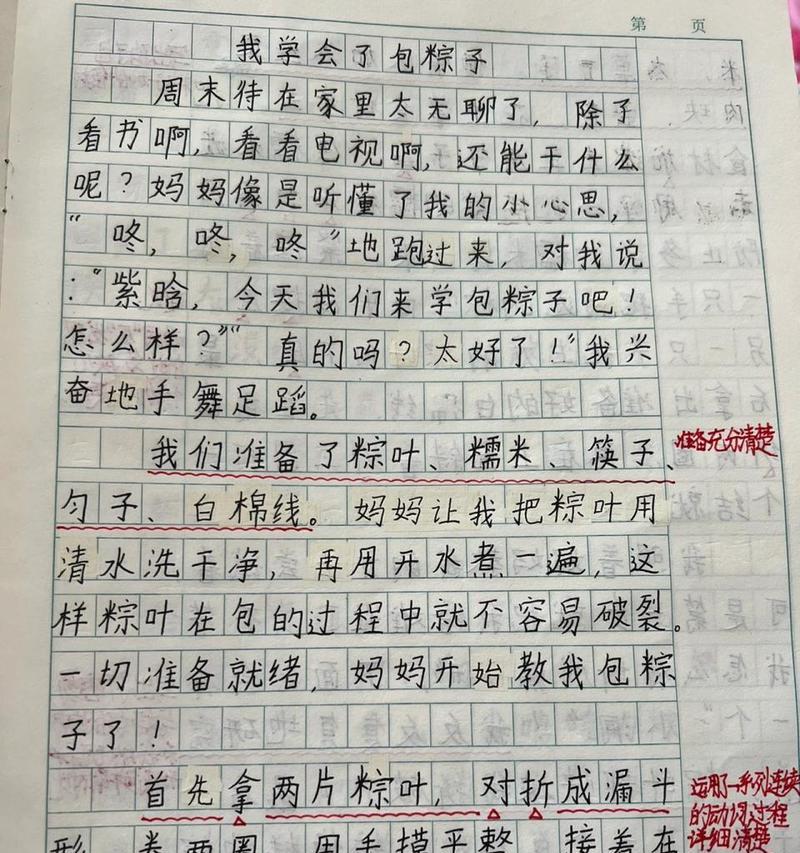 第 页
我学会了包粽子
周末待在家里太无聊了，除了
看书啊，看看电视啊，还能干什么
呢？妈妈像是听懂了我的小心思，
“咚，咚，咚”地跑过来，对我说
：“紫晗，今天我们来学包粽子吧！
怎么样？”“真的吗？太好了！”我兴
奋地手舞足蹈。
我们准备了粽叶、糯米、筷子、
准备充分清楚
勺子、白棉线。妈妈让我把粽叶用
清水洗干净，再用开水煮一遍，这
样粽叶在包的过程中就不容易破裂。
一切准备就绪，妈妈开始教我包粽
子了！
首先拿两片粽叶，对折成漏斗
运用了一系列连续
的动词，过程
详细清楚
形，卷两圈，用手摸平整，接着在